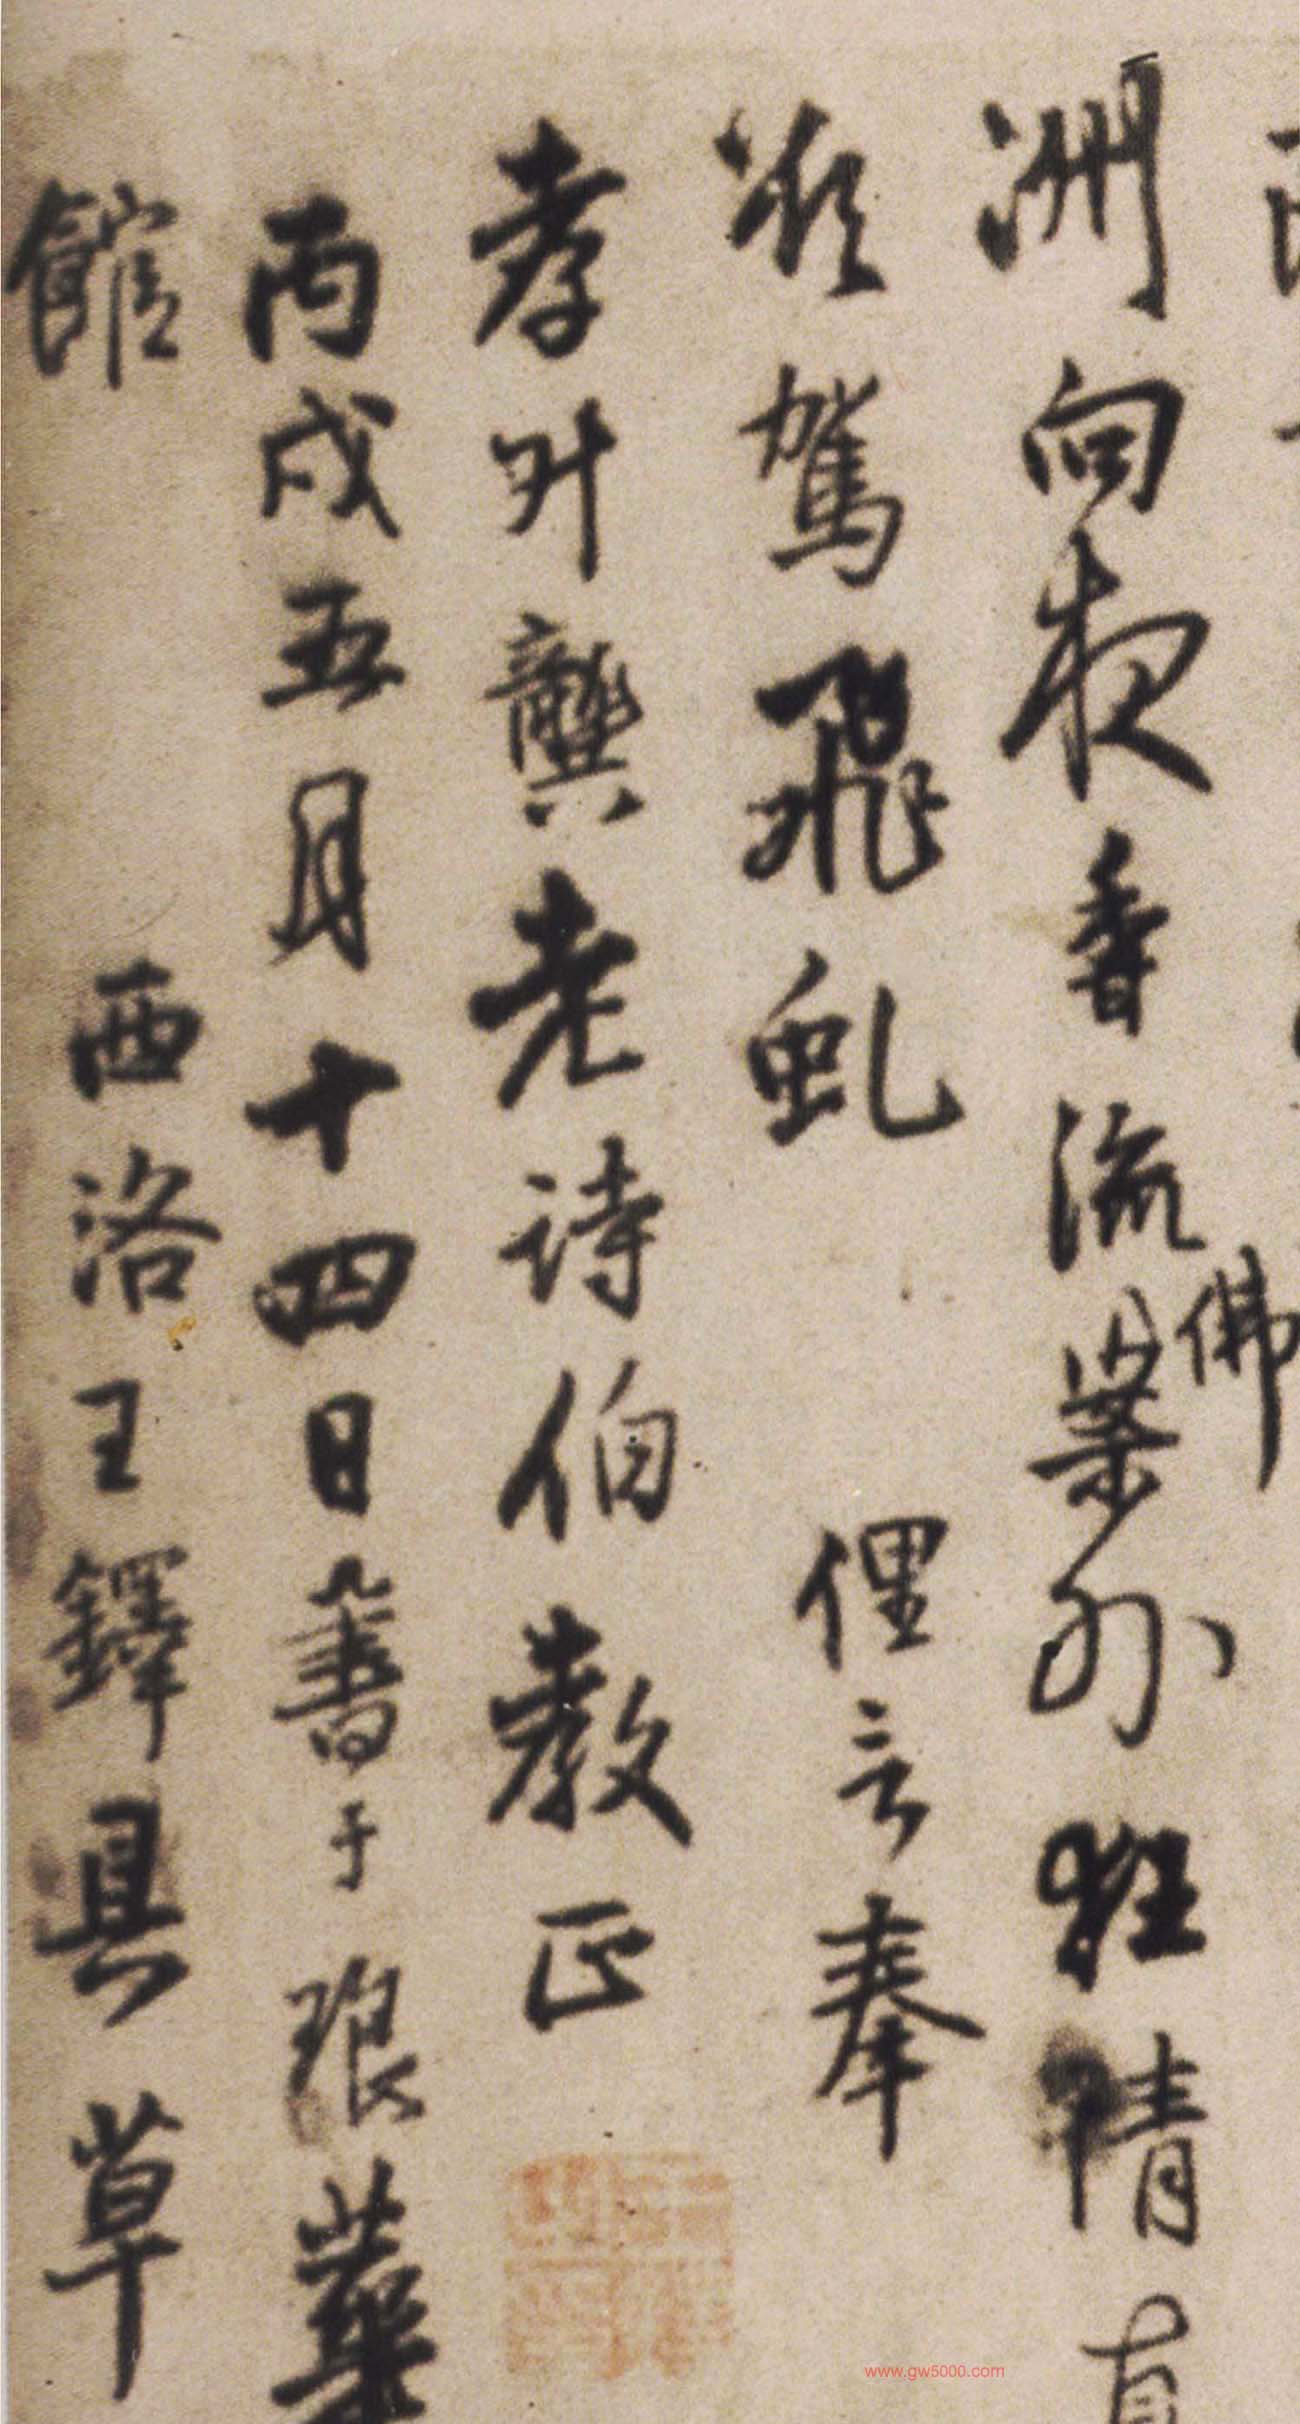 洲向夜香流藥外狂情有
佛
欲駕飛虬 俚言奉
孝升龔老詩伯教正
丙戌五月十四日書于琅華
館 西洛王鐸具草
www.gw5000.com